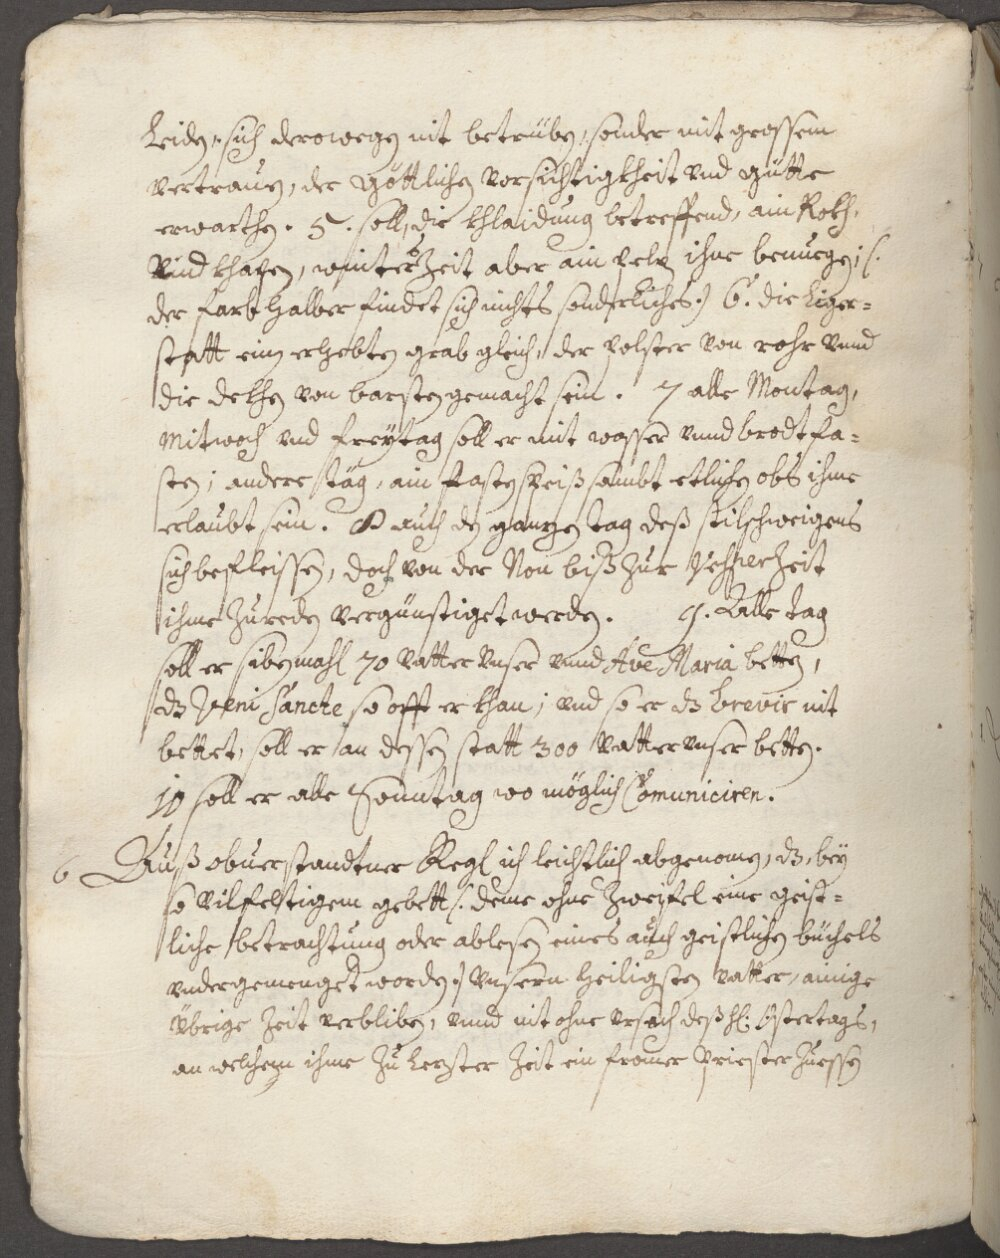 Leiden, sich derowegen nit betrüben, sonder mit grossem
vertrauen, der göttlichen vorsichtigkheit vnd gütte
erwarthen. 5. soll, die khlaidung betreffend, ain Rokh,
vnd khapen, winterszeit aber ain pelz ihme benuegen; (.
der farb halber findet sich nichts sonderliches.) 6. die Liger=
statt eim erhebten grab gleich, der polster von rohr vnnd
die dekhen von barsten gemacht sein. 7 alle Montag,
Mitwoch vnd freÿtag soll er mit wasser vnnd brodt fa=
sten; andere täg, ain fastenspeiß sambt etlichen obs ihme
erlaubt sein. 8 auch den ganzen tag deß stilschweigens
sich befleissen, doch von der Non biß zur Vesperzeit
ihme zureden vergünstiget werden. 9. Alle tag
soll er sibenmahl 70 Vatter vnser vnnd Ave Maria betten,
dz Veni Sancte so offt er khan; vnd so er dz brevir nit
bettet, soll er an dessen statt 300 Vatter vnser betten.
10 soll er alle Sonntag wo möglich Comuniciren.
6 Auß obuerstandtner Regl ich leichtlich abgenomen, dz, beÿ
so vilfeltigem gebett (. deme ohne zweyfel eine geist=
liche betrachtung oder ablesen eines auch geistlichen büchels
vndergemenget worden.) vnserm heiligsten vatter, ainige
übrige zeit verbliben, vnnd nit ohne vrsach deß hl: Ostertags,
an welchem ihme zu lezster zeit ein fromer Priester zuessen